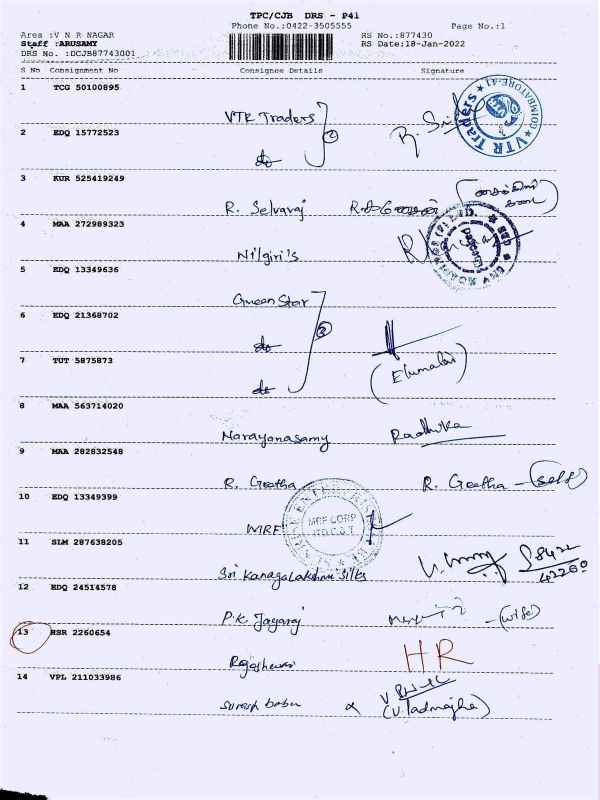 TPC/CJB DRS - P41
Phone No.:0422-3505555 Page No.:1
Area :V N R NAGAR RS No.:877430
Staff :ARUSAMY RS Date;18-Jan-2022
DRS No. :DCJB87743001
S No Consignment No Consignee Details Signature
1 TCG 50100895
VTR Traders
2 EDQ 15772523
do
3 KUR 525419249
R. Selvaraj
4 MAA 272989323
Nilgiri's
5 EDQ 13349636
Green Star
6 EDQ 21368702
do
7 TUT 5875873
do (Elumalai)
8 MAA 563714020
Narayanasamy Radhika
9 MAA 282832548
R. Geetha R. Geetha - (self)
10 EDQ 13349399
MRF MRF CORP
11 SLM 287638205
Sri Kanagalakshmi Silks
12 EDQ 24514578
P.K. Jayaraj (wife)
13 HSR 2260654
Rajeshwari HR
14 VPL 211033986
Suresh babu
VTR Traders COIMBATORE-41